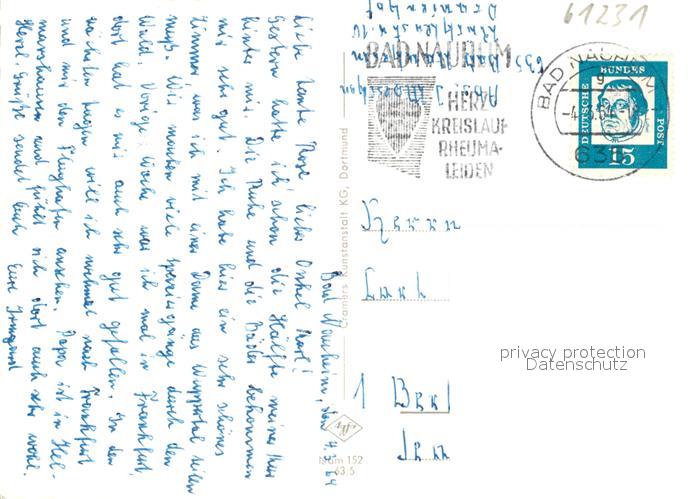 61231
BAD NAUHEIM
HERZ
KREISLAUF
RHEUMA-
LEIDEN
BAD NAUHEIM
635
DEUTSCHE BUNDESPOST
15
Bad Nauheim, den 4. 64
Liebe Tante Rose, lieber Onkel Karl!
Gestern hatte ich schon die Hälfte meiner Kur
hinter mir. Die Ruhe und die Bäder bekommen
mir sehr gut. Ich habe hier ein sehr schönes
Zimmer, was ich mit einer Dame aus Wuppertal teilen
muß. Wir machen viele Spaziergänge durch den
Wald. Vorige Woche war ich mal in Frankfurt,
dort hat es mir auch sehr gut gefallen. In den
nächsten Tagen will ich nochmal nach Frankfurt
und mir den Flughafen ansehen. Papa ist in Hel-
marshausen und fühlt sich dort auch sehr wohl.
Herzl. Grüße sendet Euch Eure Irmgard
Cramers Kunstanstalt KG, Dortmund
152
63/5
1 Berl
privacy protection
Datenschutz